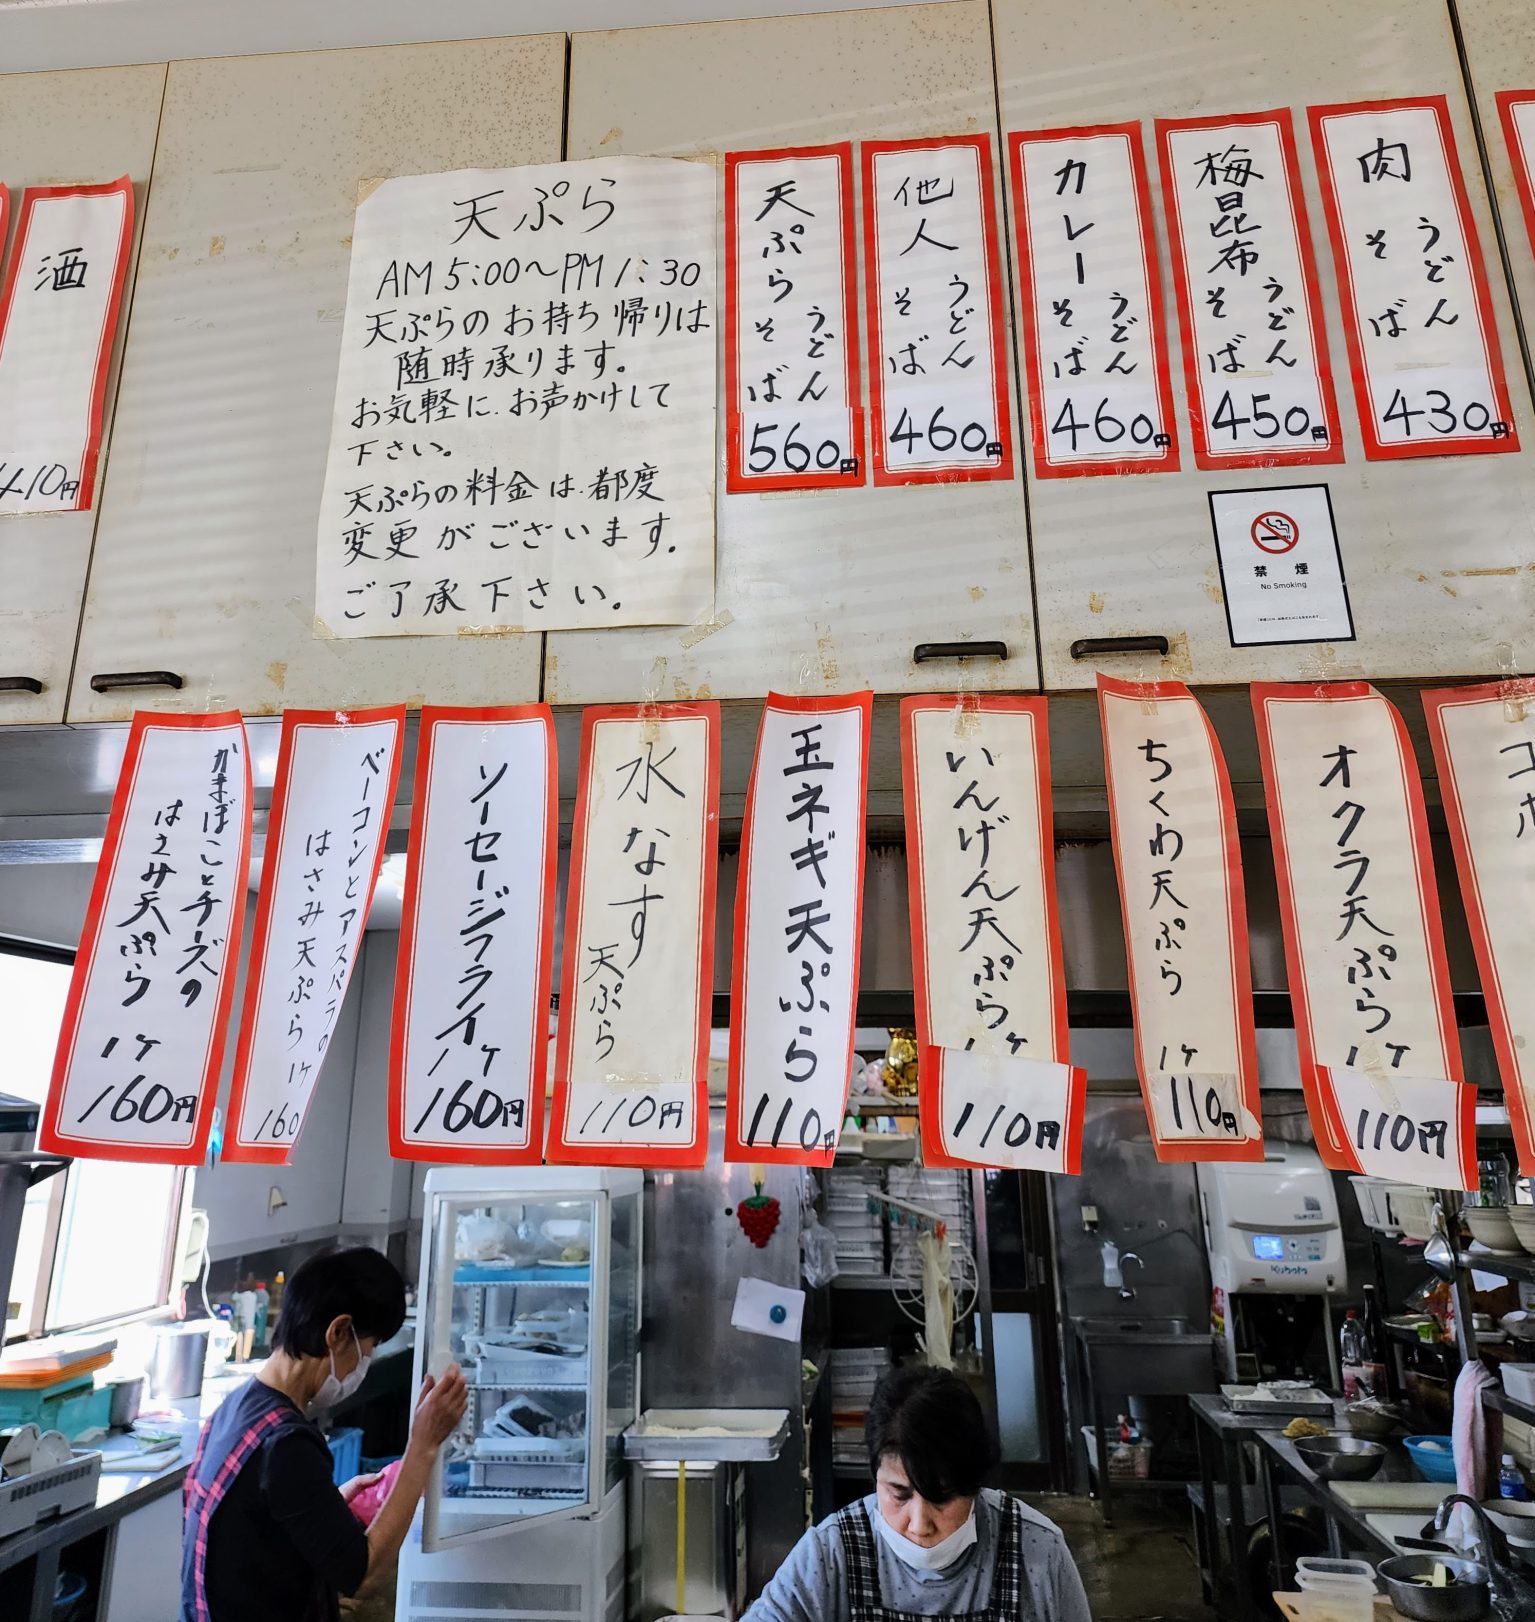 酒
410円
天ぷら
AM 5:00〜PM 1:30
天ぷらのお持ち帰りは
随時承ります。
お気軽に、お声かけして
下さい。
天ぷらの料金は、都度
変更がございます。
ご了承下さい。
天ぷら
うどん
そば
560円
他人
うどん
そば
460円
カレー
うどん
そば
460円
梅昆布
うどん
そば
450円
肉
うどん
そば
430円
禁煙
No Smoking
かまぼことチーズの
はさみ天ぷら
1ケ
160円
ベーコンとアスパラの
はさみ天ぷら 1ケ
160
ソーセージフライ
1ケ
160円
水なす
天ぷら
110円
玉ネギ天ぷら
110円
いんげん天ぷら
1ケ
110円
ちくわ天ぷら
1ケ
110円
オクラ天ぷら
1ケ
110円
Kubota